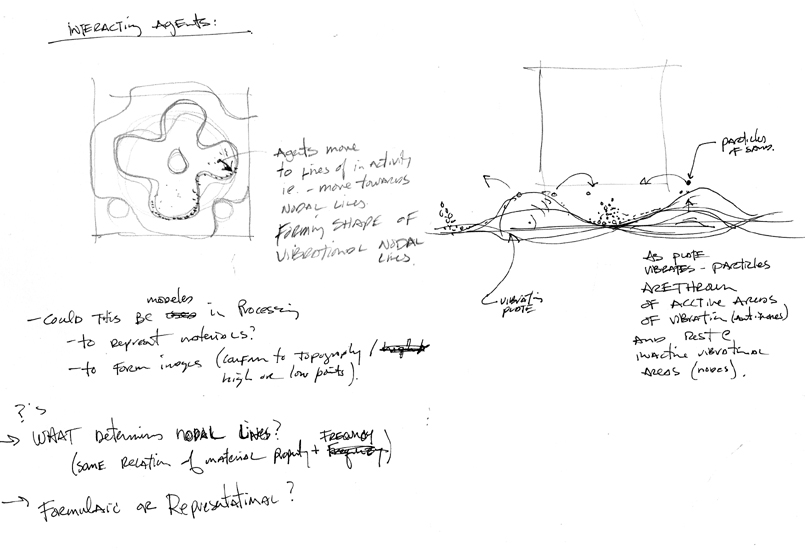 INTERACTING AGENTS:
Agents move
to lines of inactivity
i.e. - move towards
NODAL LINES.
FORMING SHAPE OF
VIBRATIONAL NODAL
LINES.
PARTICLES
OF SAND.
VIBRATING
PLATE
AS PLATE
VIBRATES - PARTICLES
ARE THROWN
OF ACTIVE AREAS
OF VIBRATION (Antinodes)
AND REST @
INACTIVE VIBRATIONAL
AREAS (nodes).
modeled
- COULD THIS BE in Processing
- to represent materials?
- to form images (conform to topography /
high or low points).
?'s
→ WHAT Determines NODAL LINES?
FREQUENCY
(some relation of material property + Frequency)
→ Formulaic or Representational?